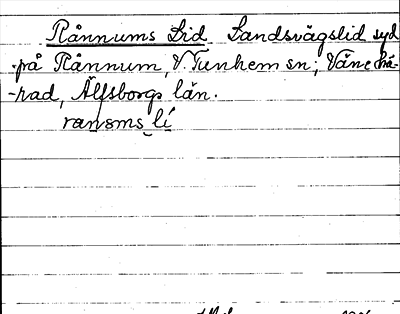 Rånnums Lid Landsvägslid syd
på Rånnum, V. Tunhem sn; Väne hä-
rad, Älfsborgs län.
ransms li